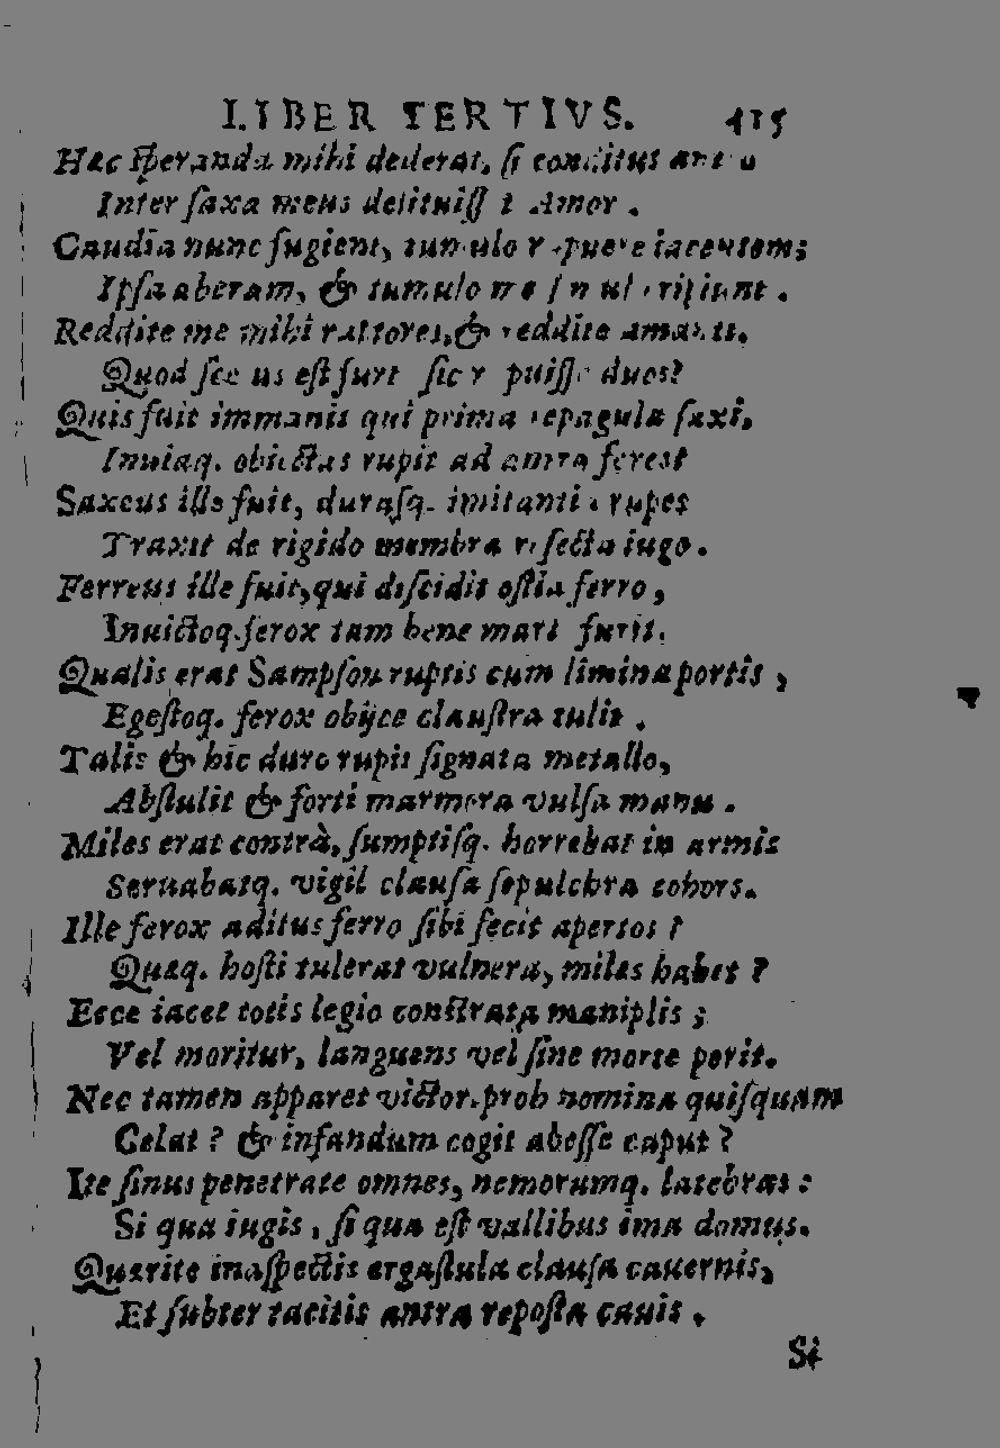 LIBER TERTIVS. 415
Hæc ſperanda mihi dederat, ſi conditus antro
Inter ſaxa meus delituiſſet Amor.
Gaudia nunc fugient, tumulo rapuere iacentem;
Ipſa aberam, & tumulo me ſin
Reddite me mihi raptores, & reddite amanti.
Quod ſcelus eſt furto ſic rapuiſſe duos?
Quis fuit immanis qui prima repagula ſaxi,
Inuiaq. obiectas rupit ad antra
Saxeus ille fuit, duraſq. imitantia rupes
Traxit de rigido membra reſecta iugo.
Ferreus ille fuit, qui diſcidit oſtia ferro,
Inuictoq. ferox tam bene marte furit.
Qualis erat Sampſon ruptis cum limina portis,
Egeſtoq. ferox obijce clauſtra tulit.
Talis & hic duro rupit ſignata metallo,
Abſtulit & forti marmora vulſa manu.
Miles erat contrà, ſumptiſq. horrebat in armis
Seruabatq. vigil clauſa ſepulchra cohors.
Ille ferox aditus ferro ſibi fecit apertos?
Quæq. hoſti tulerat vulnera, miles habet?
Ecce iacet totis legio conſtrata maniplis;
Vel moritur, languens vel ſine morte perit.
Nec tamen apparet victor. proh nomina quiſquam
Celat? & infandum cogit abeſſe caput?
Ite ſinus penetrate omnes, nemorumq. latebras:
Si qua iugis, ſi qua eſt vallibus ima domus.
Quærite inaſpectis ergaſtula clauſa cauernis,
Et ſubter tacitis antra repoſta cauis.
Si